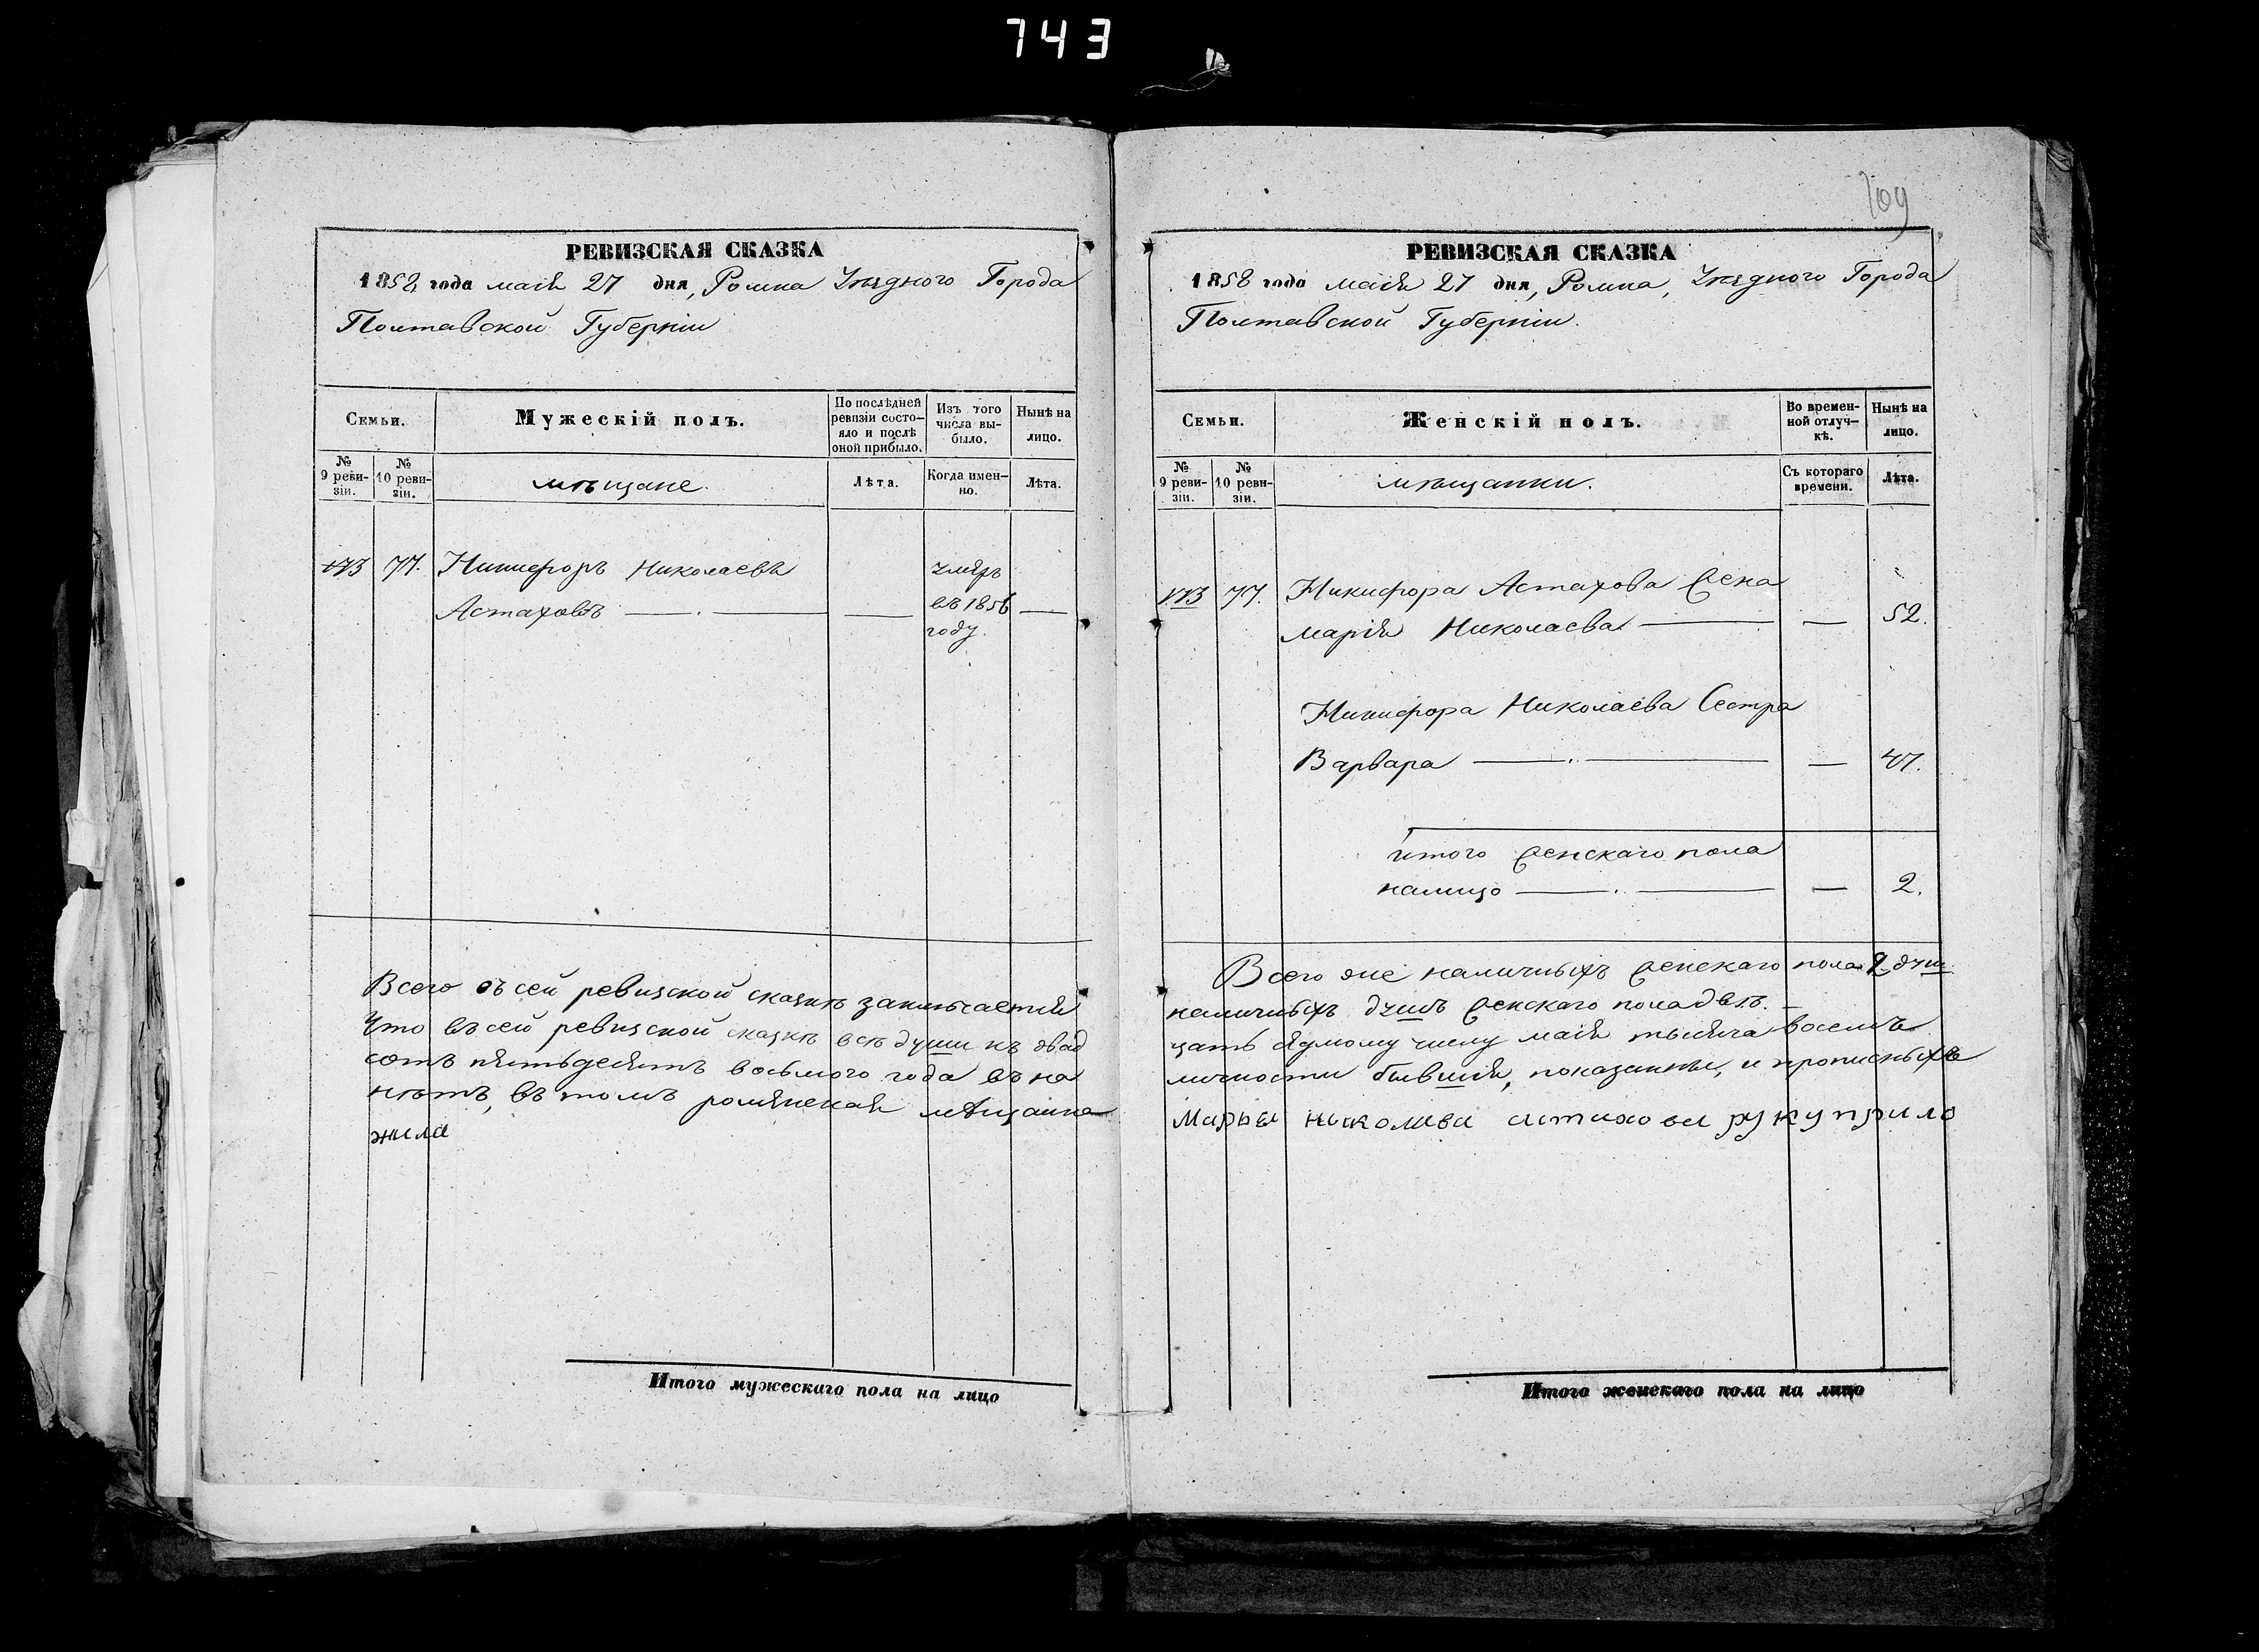 743
109
РЕВИЗСКАЯ СКАЗКА
1858 года маія 27 дня, Ромна Уѣзднаго Города
Полтавской Губерніи
Семьи.
Мужескій полъ.
По послѣдней ревизіи состо-яло и послѣ оной прибыло.
Изъ того числа вы-было.
Нынѣ на лицо.
№ 9 реви-зіи.
№ 10 реви-зіи.
мѣщане.
Лѣта.
Когда имен-но.
Лѣта.
173 77. Никифоръ Николаевъ умеръ
Астаховъ — . — — въ 1856 —
году.
Всего въ сей ревизской сказкѣ заключается
Что въ сей ревизской сказкѣ всѣ души къ двад
сотъ пятьдесятъ восьмого года въ на
нѣтъ, въ томъ роменская мѣщанка
жила
Итого мужескаго пола на лицо
РЕВИЗСКАЯ СКАЗКА
1858 года маія 27 дня, Ромна, Уѣзднаго Города
Полтавской Губерніи.
Семьи.
Женскій полъ.
Во времен-ной отлуч-кѣ.
Нынѣ на лицо.
№ 9 реви-зіи.
№ 10 реви-зіи.
мѣщанки.
Съ котораго времени.
Лѣта.
173 77. Никифора Астахова Жена
марія Николаева — — 52.
Никифора Николаева Сестра
Варвара — . — — 47.
итого женскаго пола
налицо — . — — 2.
Всего же наличныхъ женскаго пола 2 душ
наличныхъ душъ женскаго пола двѣ. —
цать седмому числу маія тысяча восемь
личности бывшія, показаны, и прописныхъ
Марья николаева астахова руку прило
Итого женскаго пола на лицо